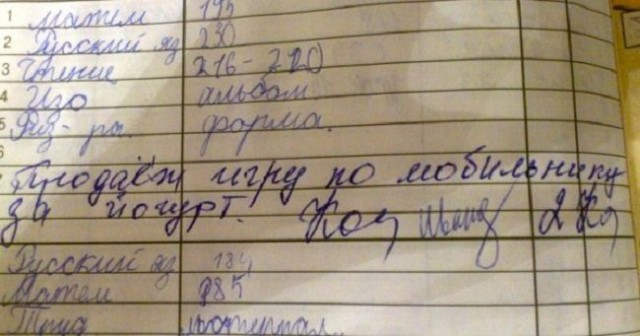 1 Матем 195
2 Русский яз 230
3 Чтение 216-220
4 Изо альбом
5 Физ-ра. форма.
6
Продаёж игру по мобильнику
за йогурт.
Русский яз 184
Матем 285
Труд материал.